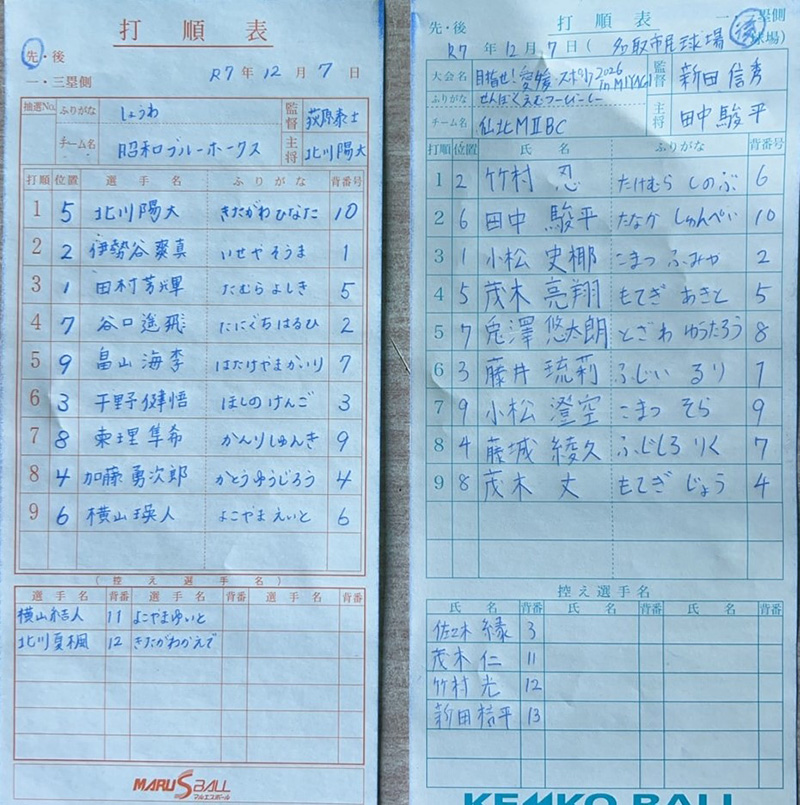 打順表
先・後
一・三塁側
R7年12月7日
抽選No. ふりがな しょうわ 監督
チーム名 昭和ブルーホークス 主将 北川陽大
打順 位置 選手名 ふりがな 背番号
1 5 北川陽大 きたがわひなた 10
2 2 伊勢谷爽真 いせやそうま 1
3 1 田村芳輝 たむらよしき 5
4 7 谷口遥飛 たにぐちはるひ 2
5 9 畠山海李 はたけやまかいり 7
6 3 干野健悟 ほしのけんご 3
7 8 東理隼希 かんりしゅんき 9
8 4 加藤勇次郎 かとうゆうじろう 4
9 6 横山瑛人 よこやまえいと 6
(控え選手名)
選手名 背番 選手名 背番 選手名 背番
横山 11 よこやまゆいと
北川夏楓 12 きたがわかえで
MARUS BALL
マルエスボール
打順表
先・後 一・三塁側
R7年12月7日(名取市民球場 球場)
大会名 目指せ!愛媛・スポレク2026 in MIYAGI 監督 新田信秀
ふりがな せんぼくえむつーびーしー
チーム名 仙北MⅡBC 主将 田中駿平
打順 位置 氏名 ふりがな 背番号
1 2 竹村 忍 たけむら しのぶ 6
2 6 田中 駿平 たなか しゅんぺい 10
3 1 小松 史椰 こまつ ふみや 2
4 5 茂木 亮翔 もてぎ あきと 5
5 7 兎澤 悠太朗 とざわ ゆうたろう 8
6 3 藤井 琉莉 ふじい るり 1
7 9 小松 澄空 こまつ そら 9
8 4 藤城 綾久 ふじしろ りく 7
9 8 茂木 丈 もてぎ じょう 4
控え選手名
氏名 背番 氏名 背番 氏名 背番
佐々木 縁 3
茂木 仁 11
竹村 光 12
新田 桔平 13
KENKO BALL